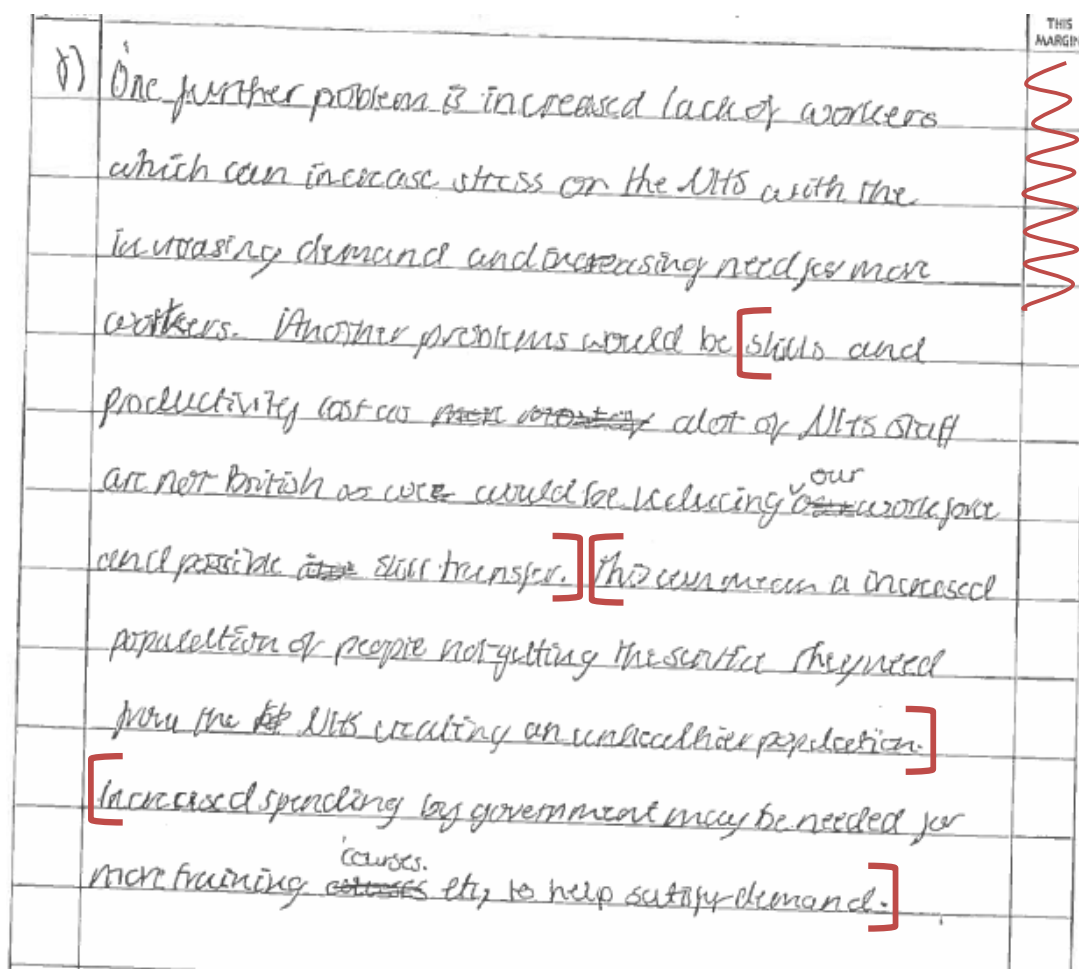 THIS
MARGIN
8) One further problem is increased lack of workers
which can increase stress on the NHS with the
increasing demand and increasing need for more
workers. Another problems would be skills and
productivity lost as alot of NHS staff
are not British as we would be reducing our workforce
and possible skill transfer. This can mean a increased
population of people not getting the service they need
from the NHS creating an unhealthier population.
Increased spending by government may be needed for
more training courses. etc, to help satisfy demand.